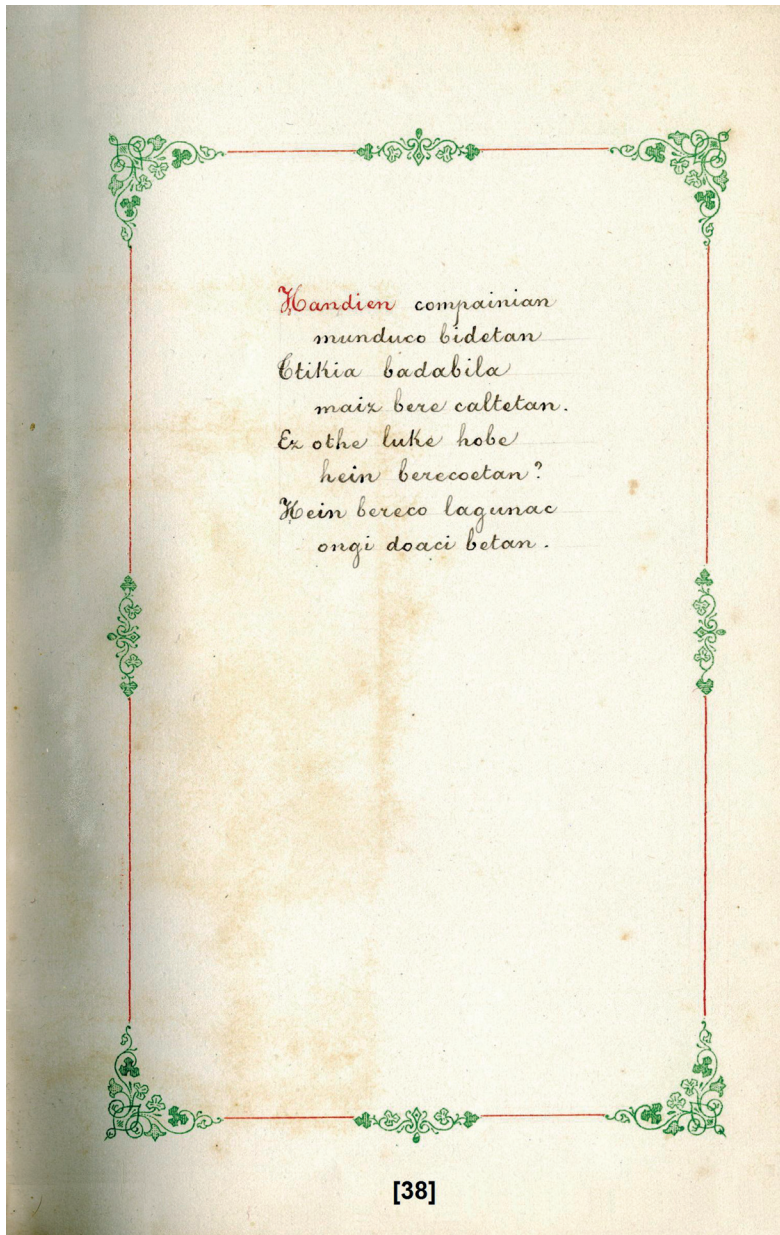 Handien compainian
munduco bidetan
Ttikia badabila
maiz bere caltetan.
Ez othe luke hobe
hein berecoetan?
Hein bereco lagunac
ongi doaci betan.
[38]